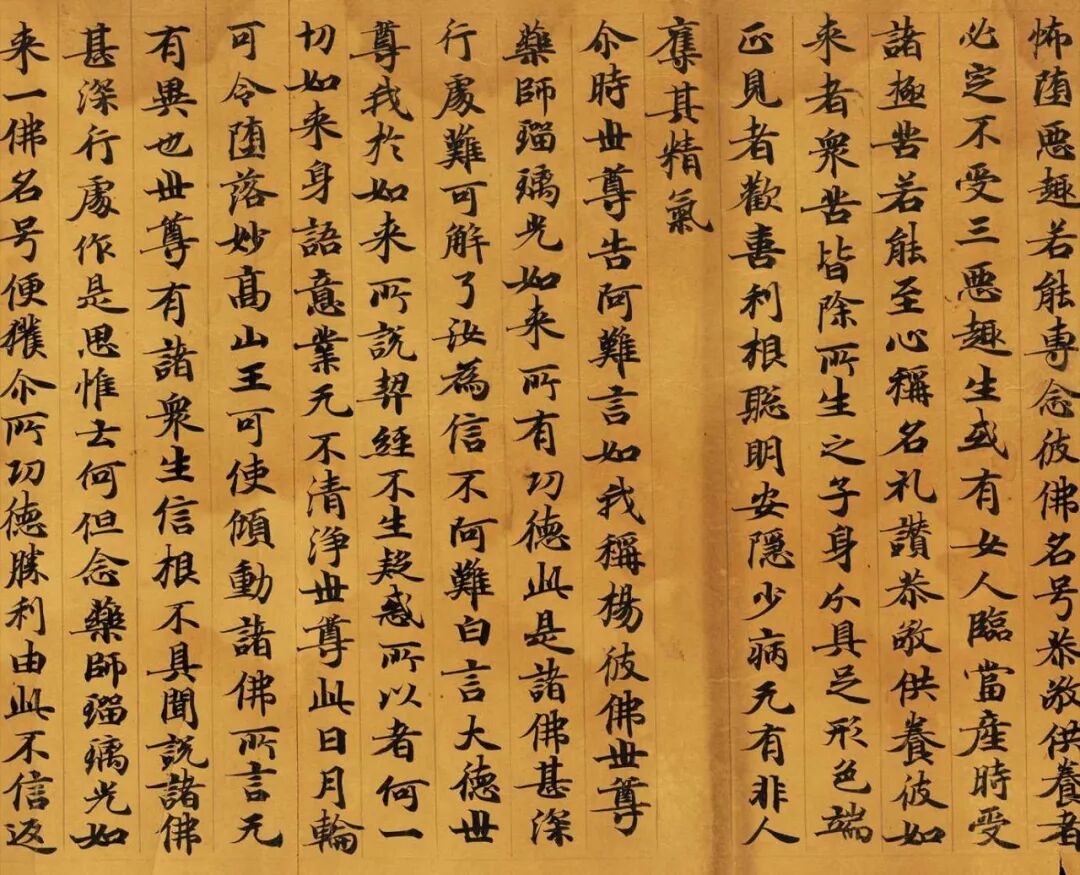 怖堕惡趣若能專念彼佛名号恭敬供養者
必定不受三惡趣生或有女人臨當産時受
諸極苦若能至心稱名礼讃恭敬供養彼如
来者衆苦皆除所生之子身分具足形色端
正見者歡喜利根聡明安隱少病无有非人
奪其精氣
尒時世尊告阿難言如我稱楊彼佛世尊
藥師瑠璃光如来所有功德此是諸佛甚深
行處難可解了汝為信不阿難白言大德世
尊我於如来所說契經不生疑惑所以者何一
切如来身語意業无不清淨世尊此日月輪
可令堕落妙高山王可使傾動諸佛所言无
有異也世尊有諸衆生信根不具聞說諸佛
甚深行處作是思惟云何但念藥師瑠璃光如
来一佛名号便獲尒所功德勝利由此不信返